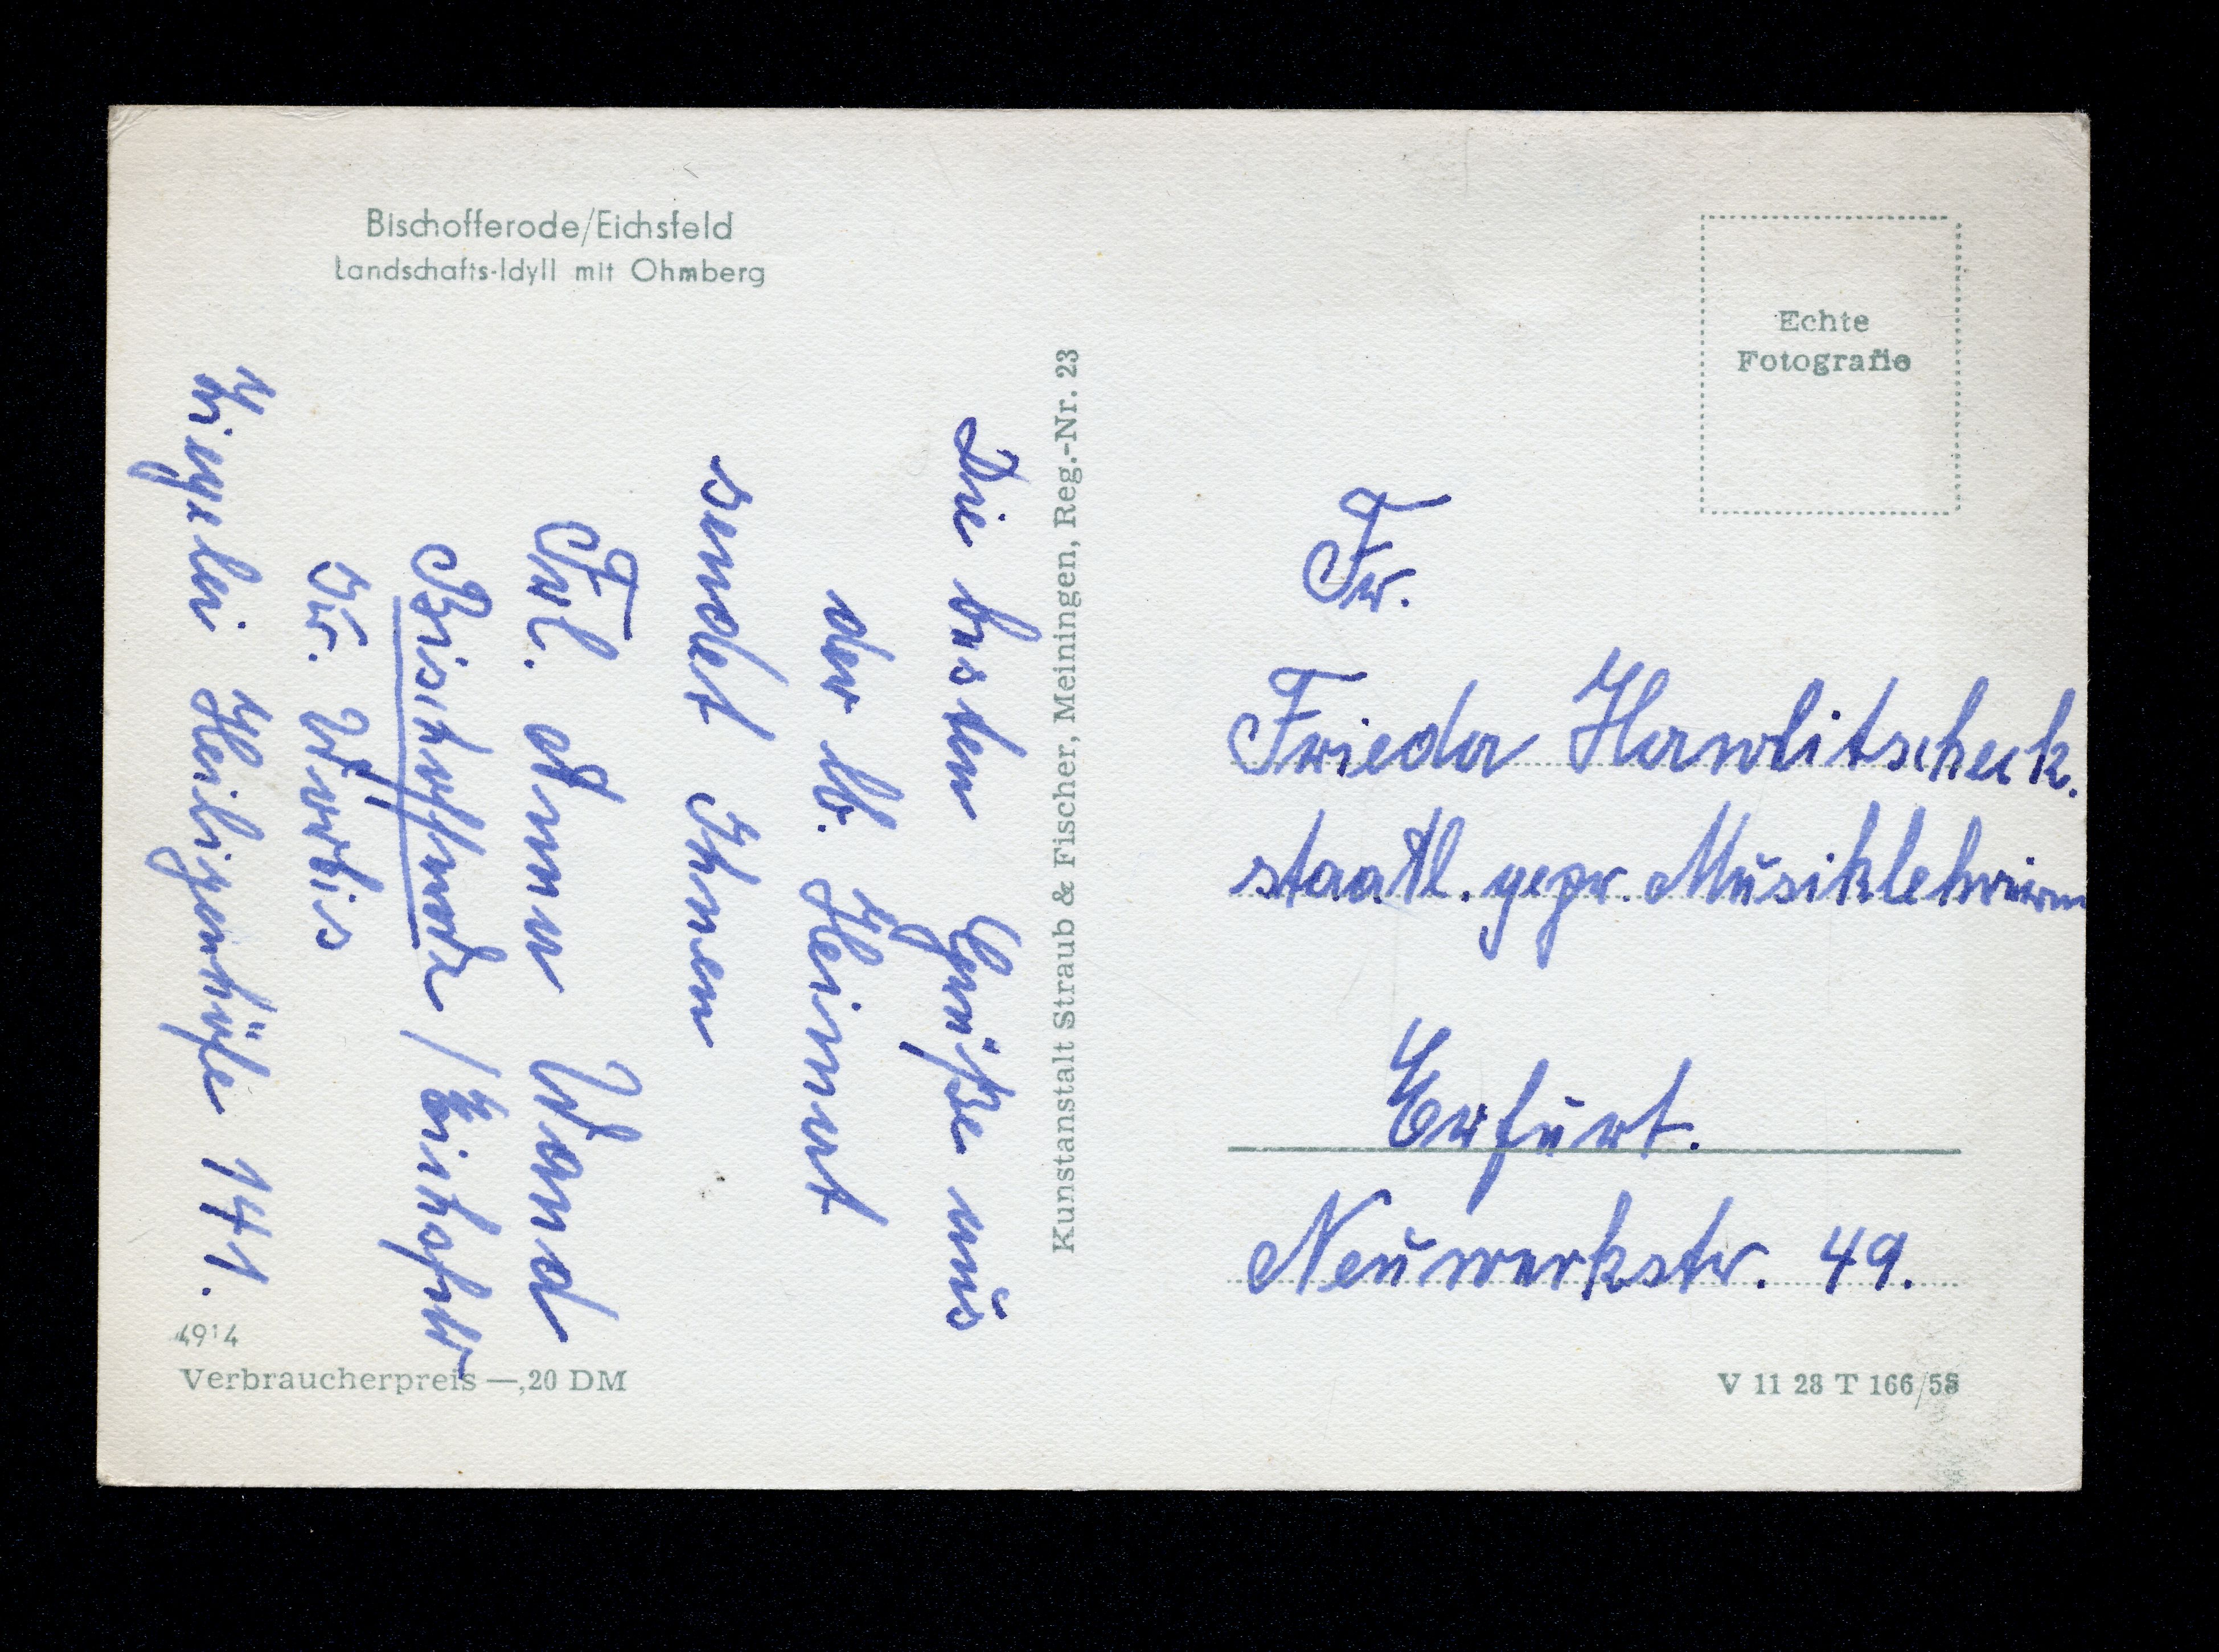 Bischofferode/Eichsfeld
Landschafts-Idyll mit Ohmberg
Die besten Grüße aus
der lb. Heimat
sendet Ihnen
Frl. Anna Wand
Bischofferode / Eichsfeld
Kr. Worbis
Ziegelei Heiligenhöfe 141.
4914
Verbraucherpreis —,20 DM
Kunstanstalt Straub & Fischer, Meiningen, Reg.-Nr. 23
Echte
Fotografie
Fr.
Frieda Hawlitscheck.
staatl. gepr. Musiklehrerin
Erfurt.
Neuwerkstr. 49.
V 11 28 T 166/58